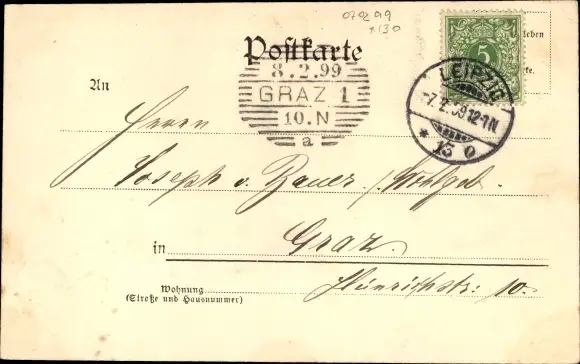 070299
*130
Postkarte
8.2.99
GRAZ 1
10.N
a
5
LEIPZIG
-7.2.99 12-1N
* 13 o
leben
ke.
An
Herrn
Joseph v. Zauer / Wohlgeb.
in Graz.
Wohnung
(Straße und Hausnummer)
Heinrichstr: 10.